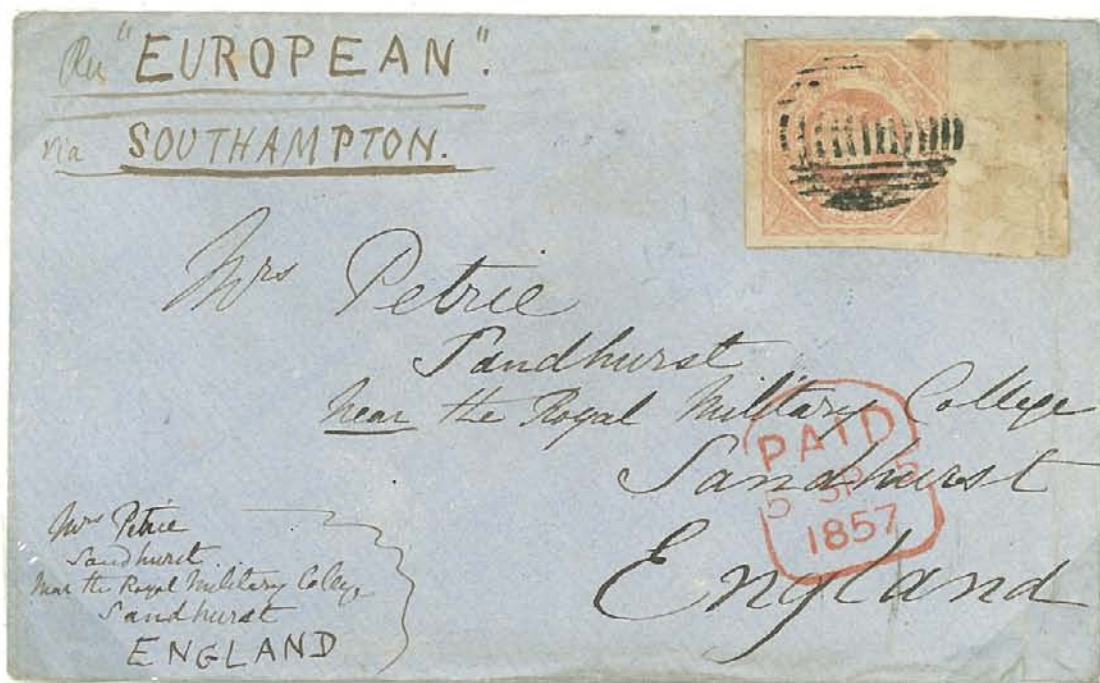 Per "EUROPEAN".
via SOUTHAMPTON.
Mrs Petrie
Sandhurst
Near the Royal Military College
Sandhurst
England
PAID
5 SP 5
1857
Mrs Petrie
Sandhurst
Near the Royal Military College
Sandhurst
ENGLAND